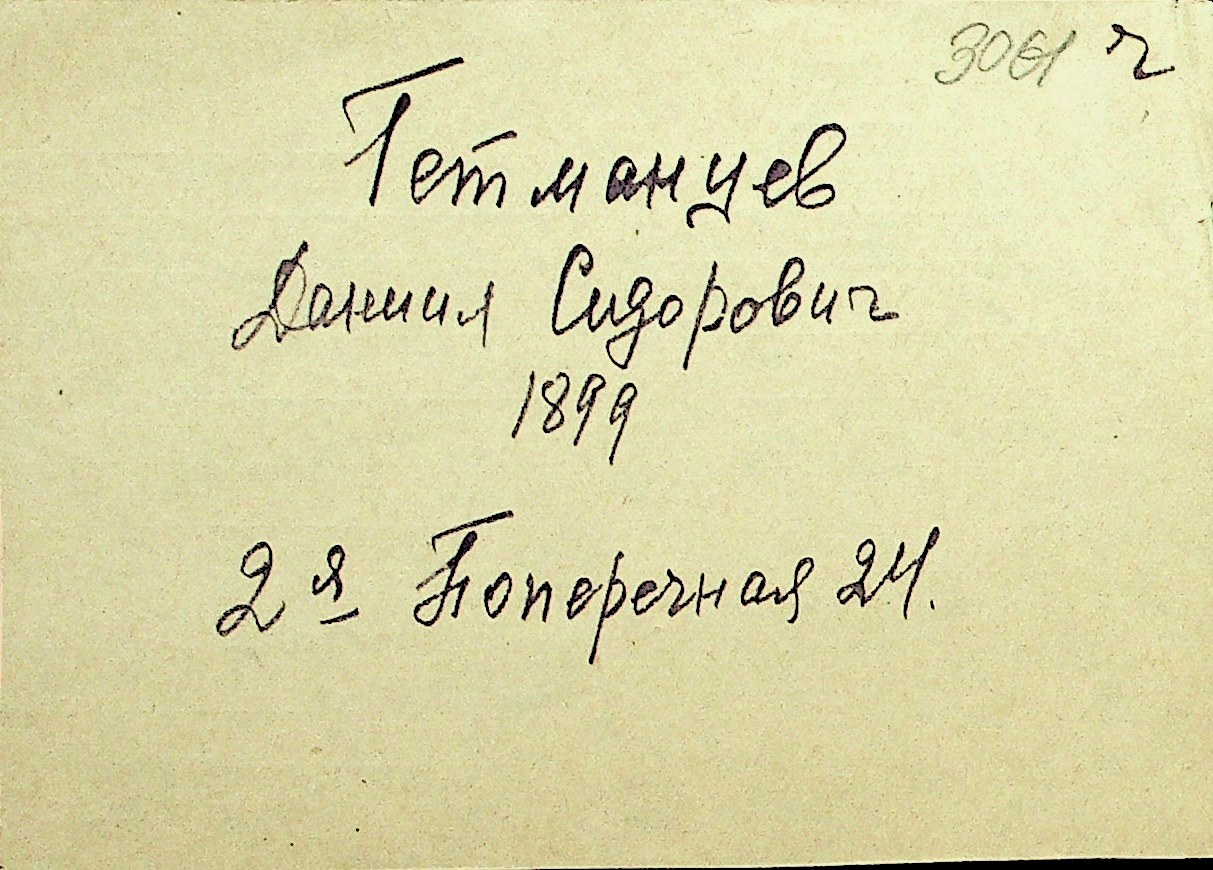 3061 ч
Гетманцев
Даниил Сидорович
1899
2я Поперечная 24.